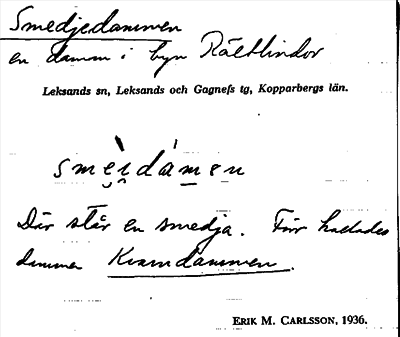 Smedjedammen
en damm i byn Rältlindor
Leksands sn, Leksands och Gagnefs tg, Kopparbergs län.
smẹi̯dàmen
Där står en smedja. Förr kallades
dammen Kvarndammen.
ERIK M. CARLSSON, 1936.